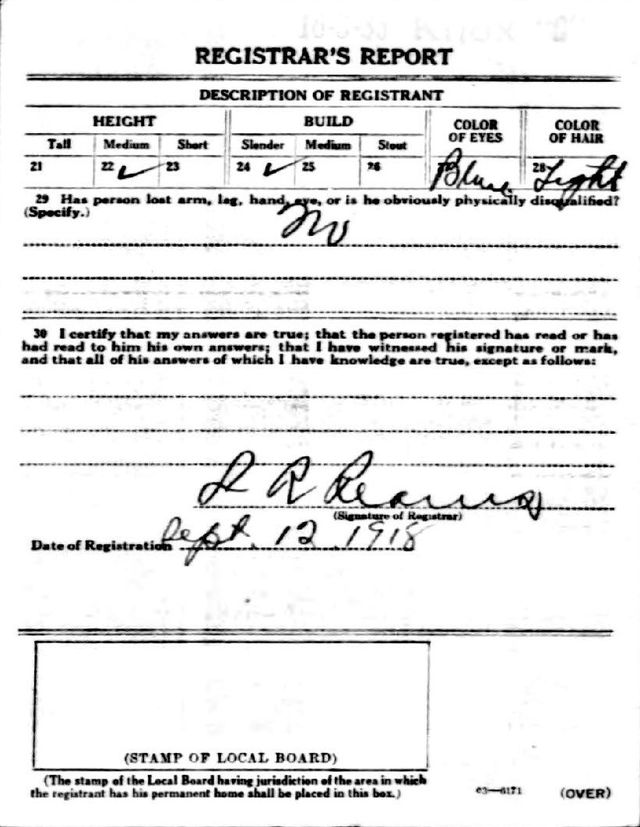 REGISTRAR'S REPORT
DESCRIPTION OF REGISTRANT
HEIGHT BUILD COLOR OF EYES COLOR OF HAIR
Tall Medium Short Slender Medium Stout
21 22 ✓ 23 24 ✓ 25 26 Blue 28 Light
29 Has person lost arm, leg, hand, eye, or is he obviously physically disqualified?
(Specify.) No
30 I certify that my answers are true; that the person registered has read or has
had read to him his own answers; that I have witnessed his signature or mark,
and that all of his answers of which I have knowledge are true, except as follows:
R
(Signature of Registrar)
Date of Registration Sept. 12 1918
(STAMP OF LOCAL BOARD)
(The stamp of the Local Board having jurisdiction of the area in which
the registrant has his permanent home shall be placed in this box.)
03—6171 (OVER)